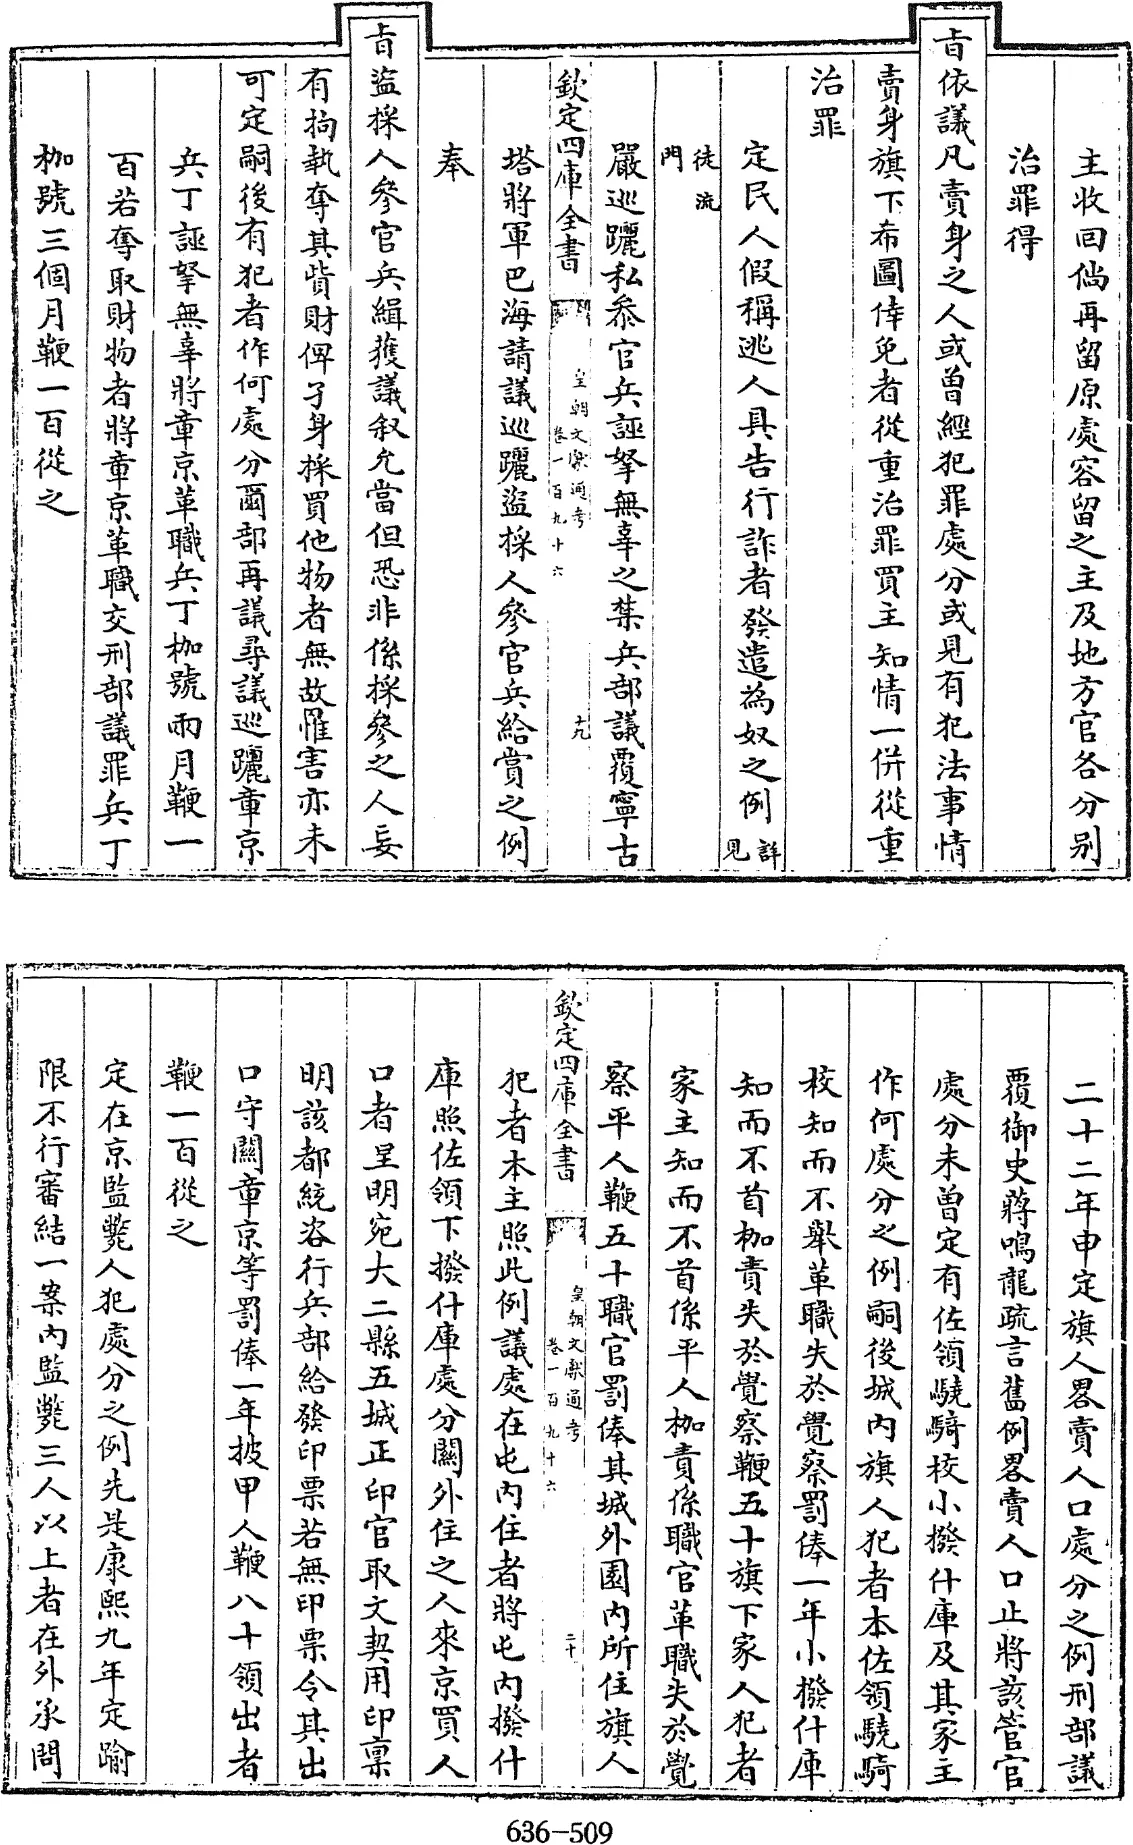 主收回倘再留原處容留之主及地方官各分别
治罪得
旨依議凡賣身之人或曾經犯罪處分或見有犯法事情
賣身旗下希圖倖免者從重治罪買主知情一併從重
治罪
定民人假稱逃人具告行詐者發遣為奴之例詳見
徒流
門
嚴巡躧私叅官兵誣拏無辜之禁兵部議覆寧古
欽定四庫全書
皇朝文獻通考
卷一百九十六
十九
塔將軍巴海請議巡躧盜採人參官兵給賞之例
奉
旨盜採人參官兵緝獲議叙允當但恐非係採參之人妄
有拘執奪其貲財俾孑身採買他物者無故罹害亦未
可定嗣後有犯者作何處分爾部再議尋議巡躧章京
兵丁誣拏無辜將章京革職兵丁枷號兩月鞭一
百若奪取財物者將章京革職交刑部議罪兵丁
枷號三個月鞭一百從之
二十二年申定旗人畧賣人口處分之例刑部議
覆御史蔣鳴龍疏言舊例畧賣人口止將該管官
處分未曾定有佐領驍騎校小撥什庫及其家主
作何處分之例嗣後城内旗人犯者本佐領驍騎
校知而不舉革職失於覺察罰俸一年小撥什庫
知而不首枷責失於覺察鞭五十旗下家人犯者
家主知而不首係平人枷責係職官革職失於覺
察平人鞭五十職官罰俸其城外園内所住旗人
欽定四庫全書
皇朝文獻通考
卷一百九十六
二十
犯者本主照此例議處在屯内住者將屯内撥什
庫照佐領下撥什庫處分關外住之人來京買人
口者呈明宛大二縣五城正印官取文契用印稟
明該都統咨行兵部給發印票若無印票令其出
口守關章京等罰俸一年披甲人鞭八十領出者
鞭一百從之
定在京監斃人犯處分之例先是康熙九年定踰
限不行審結一案内監斃三人以上者在外承問
636-509